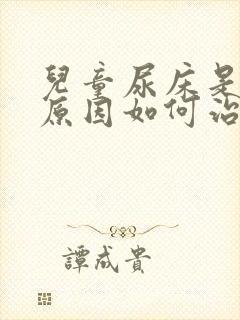 兒童尿床是
原因如何治
譚成貴